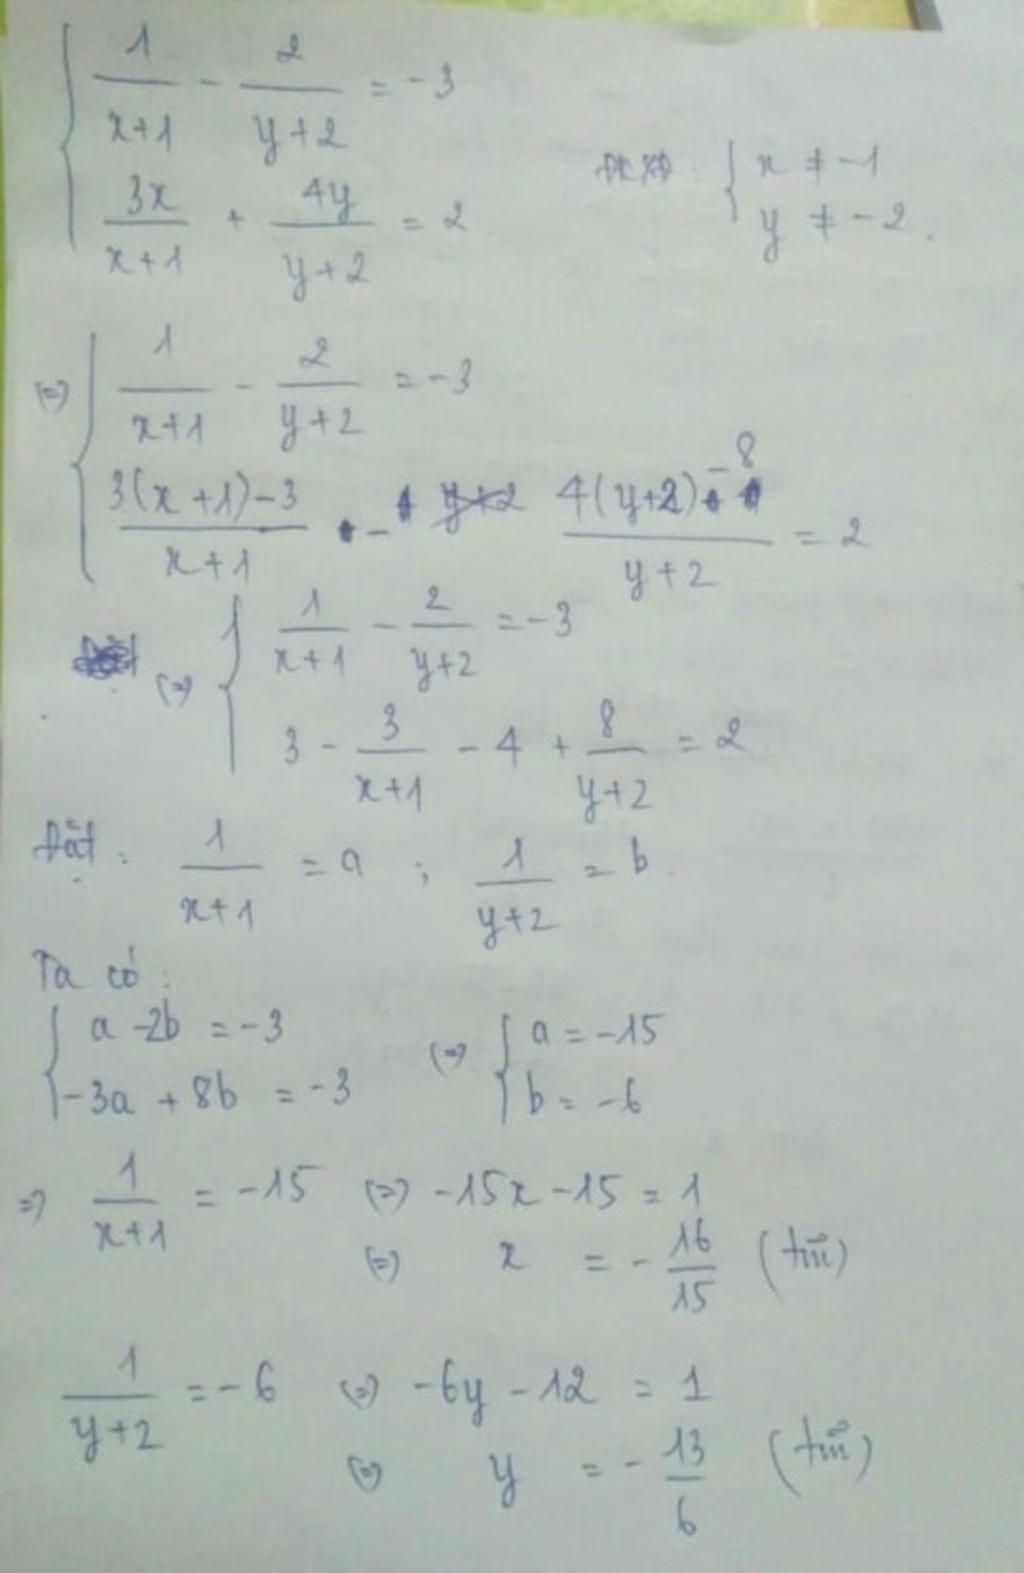 { 1/(x+1) - 2/(y+2) = -3
3x/(x+1) + 4y/(y+2) = 2
ĐKXĐ { x ≠ -1
y ≠ -2.
(=) { 1/(x+1) - 2/(y+2) = -3
(3(x+1)-3)/(x+1) - (4(y+2)-8)/(y+2) = 2
(=) { 1/(x+1) - 2/(y+2) = -3
3 - 3/(x+1) - 4 + 8/(y+2) = 2
Đặt : 1/(x+1) = a ; 1/(y+2) = b
Ta có :
{ a - 2b = -3 (=) { a = -15
-3a + 8b = -3 b = -6
=) 1/(x+1) = -15 (=) -15x - 15 = 1
(=) x = -16/15 (tm)
1/(y+2) = -6 (=) -6y - 12 = 1
(=) y = -13/6 (tm)